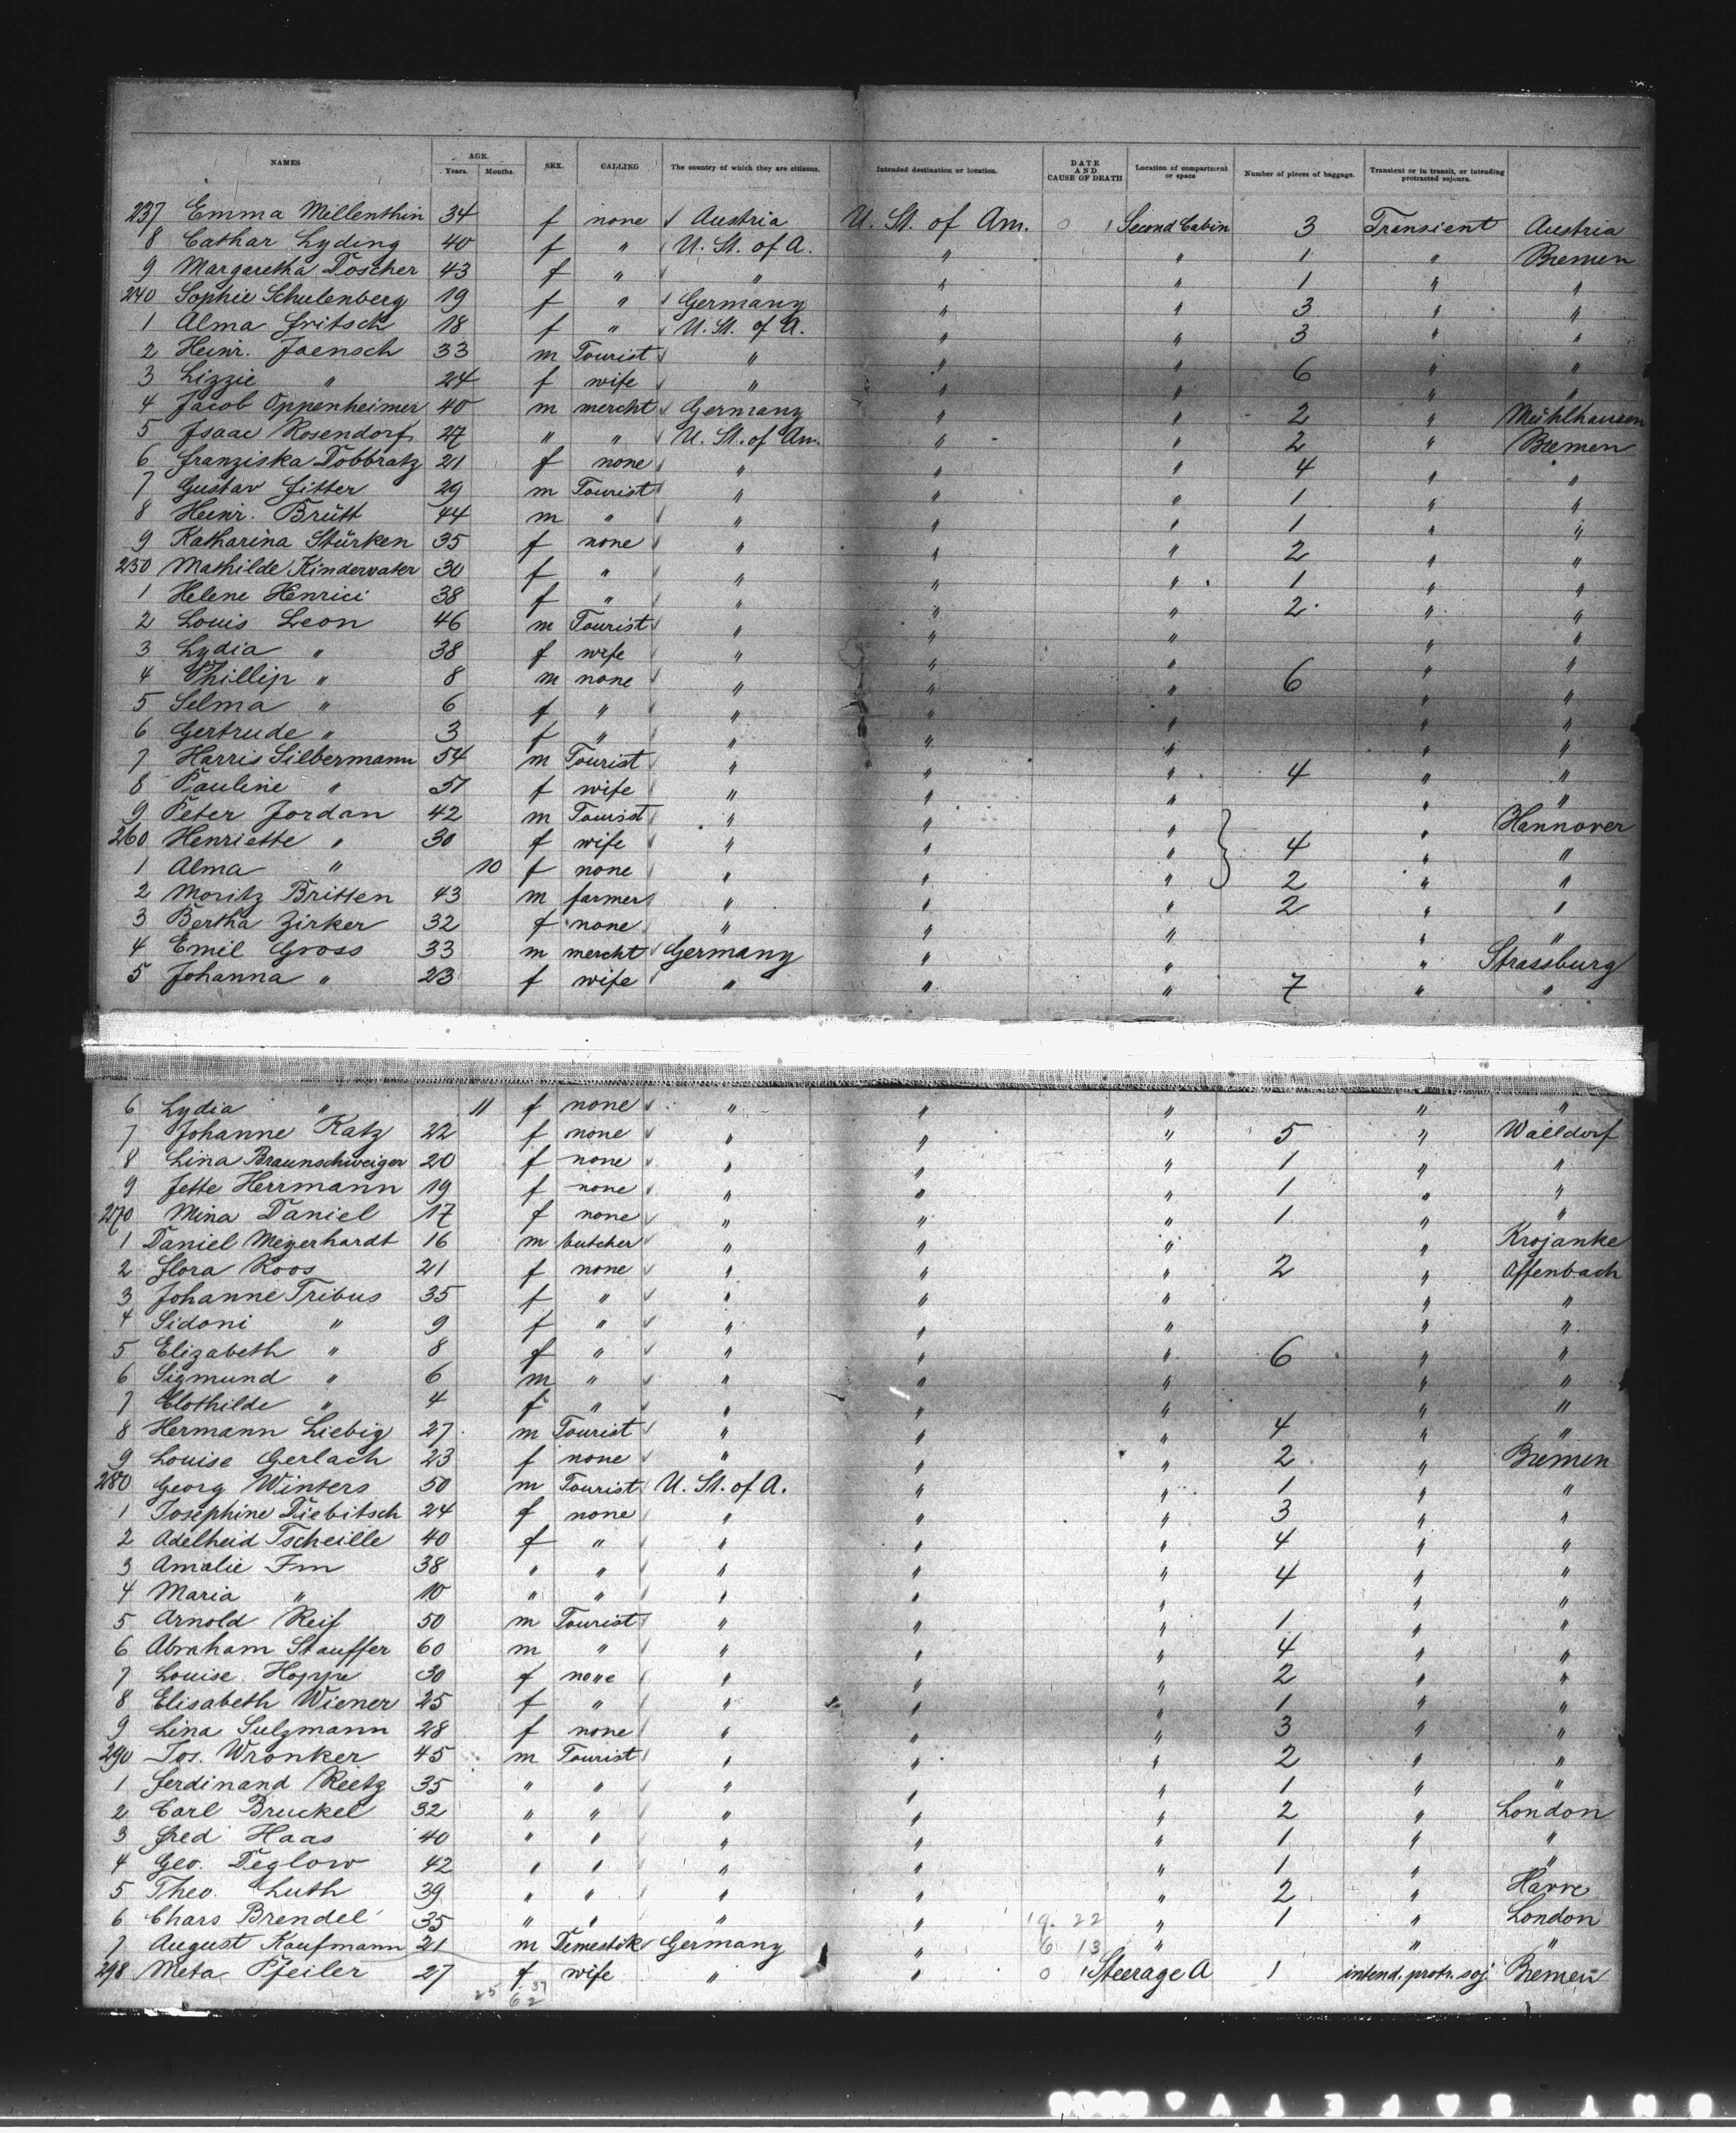 NAMES AGE. Years. Months. SEX. CALLING The country of which they are citizens. Intended destination or location. DATE AND CAUSE OF DEATH Location of compartment or space Number of pieces of baggage. Transient or in transit, or intending protracted sojourn.
237 Emma Mellenthin 34 f none Austria U. St. of Am. Second Cabin 3 Transient Austria
8 Cathar Lyding 40 f " U. St. of A. " " 1 " Bremen
9 Margaretha Doscher 43 f " " " " 1 " "
240 Sophie Schulenberg 19 f " Germany " " 3 " "
1 Alma Fritsch 18 f " U. St. of A. " " 3 " "
2 Heinr. Jaensch 33 m Tourist " " " " "
3 Lizzie " 24 f wife " " " 6 " "
4 Jacob Oppenheimer 40 m mercht Germany " " 2 " Mühlhausen
5 Isaac Rosendorf 27 " " U. St. of Am. " " 2 " Bremen
6 Franziska Dobbratz 21 f none " " " 4 " "
7 Gustav Fitter 29 m Tourist " " " 1 " "
8 Heinr. Brütt 44 m " " " " 1 " "
9 Katharina Stürken 35 f none " " " 2 " "
250 Mathilde Kindervater 30 f " " " " 1 " "
1 Helene Henrici 38 f " " " " 2 " "
2 Louis Leon 46 m Tourist " " " " "
3 Lydia " 38 f wife " " " " "
4 Phillip " 8 m none " " " 6 " "
5 Selma " 6 f " " " " " "
6 Gertrude " 3 f " " " " " "
7 Harris Silbermann 54 m Tourist " " " 4 " "
8 Pauline " 51 f wife " " " " "
9 Peter Jordan 42 m Tourist " " " " Hannover
260 Henriette " 30 f wife " " " 4 " "
1 Alma " 10 f none " " " 2 " "
2 Moritz Britten 43 m farmer " " " 2 " "
3 Bertha Zirker 32 f none " " " " "
4 Emil Gross 33 m mercht Germany " " " Strassburg
5 Johanna " 23 f wife " " " 7 " "
6 Lydia " 11 f none " " " " "
7 Johanne Katz 22 f none " " " 5 " Walldorf
8 Lina Braunschweiger 20 f none " " " 1 " "
9 Jette Herrmann 19 f none " " " 1 " "
270 Mina Daniel 17 f none " " " 1 " "
1 Daniel Meyerhardt 16 m butcher " " " " Krojanke
2 Flora Roos 21 f none " " " 2 " Offenbach
3 Johanne Tribus 35 f " " " " " "
4 Sidoni " 9 f " " " " " "
5 Elizabeth " 8 f " " " " 6 " "
6 Sigmund " 6 m " " " " " "
7 Clothilde " 4 f " " " " " "
8 Hermann Liebig 27 m Tourist " " " 4 " "
9 Louise Gerlach 23 f none " " " 2 " Bremen
280 Georg Winters 50 m Tourist U. St. of A. " " 1 " "
1 Josephine Diebitsch 24 f none " " " 3 " "
2 Adelheid Tscheille 40 f " " " " 4 " "
3 Amalie 38 " " " " " 4 " "
4 Maria " 10 " " " " " " "
5 Arnold Reif 50 m Tourist " " " 1 " "
6 Abraham Stauffer 60 m " " " " 4 " "
7 Louise Hoppe 30 f none " " " 2 " "
8 Elisabeth Wiener 25 f " " " " 1 " "
9 Lina Sulzmann 28 f none " " " 3 " "
290 Jos. Wronker 45 m Tourist " " " 2 " "
1 Ferdinand Reetz 35 " " " " " 1 " "
2 Carl Bruckel 32 " " " " " 2 " London
3 Fred. Haas 40 " " " " " 1 " "
4 Geo. Teglow 42 " " " " " 1 " "
5 Theo. Luth 39 " " " " " 2 " Havre
6 Chars Brendel 35 " " " " " 1 " London
7 August Kaufmann 21 m Demestik Germany " " " "
298 Meta Pfeiler 27 f wife " " Steerage A 1 intend. protr. soj Bremen